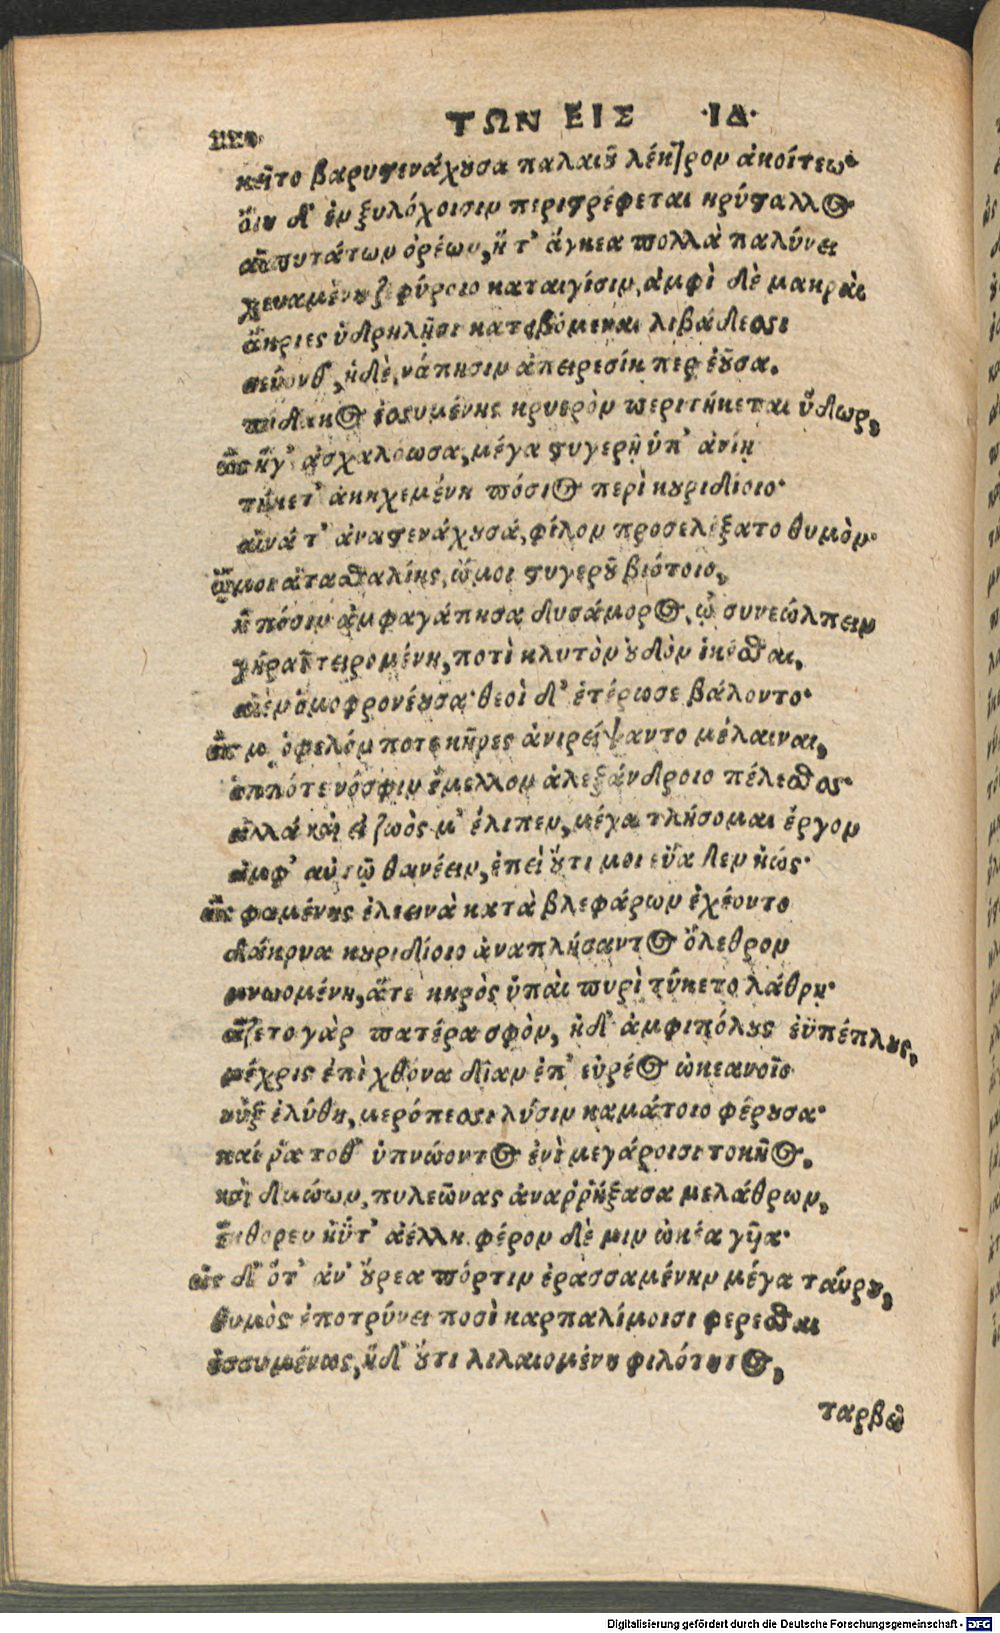 ΤΩΝ ΕΙΣ ·ΙΔ·
κεῖτο βαρυστενάχουσα παλαιοῦ λέκτρον ἀκοίτεω·
οἵη δ' ἐν ξυλόχοισιν περιτρέφεται κρύσταλλος
αἰπυτάτων ὀρέων, ἥ τ' ἄγκεα πολλὰ παλύνει
χευαμένη ζεφύροιο καταιγίσιν, ἀμφὶ δὲ μακραὶ
ἄκριες ὑδρηλῇσι κατειβόμεναι λιβάδεσσι
δεύονθ', ἡ δὲ, νάπῃσιν ἀπειρεσίη περ ἐοῦσα.
πίδακος ἐσσυμένης κρυερὸν περιτήκεται ὕδωρ,
ὣς ἥγ' ἀσχαλόωσα, μέγα στυγερῇ ὑπ' ἀνίῃ
τήκετ' ἀκηχεμένη πόσιος περὶ κουριδίοιο·
αἰνά τ' ἀναστενάχουσά, φίλον προσελέξατο θυμὸν·
ὤμοι ἀτασθαλίης, ὤμοι στυγεροῦ βιότοιο,
ἣ πόσιν ἀμφαγάπησα δυσάμορος, ᾧ συνεώλπειν
γήραϊ τειρομένη, ποτὶ κλυτὸν οὐδὸν ἱκέσθαι,
αἰὲν ὁμοφρονέουσα· θεοὶ δ' ἑτέρωσε βάλοντο·
ὥς μ' ὄφελόν ποτε κῆρες ἀνιρείψαντο μέλαιναι,
ὁππότε νόσφιν ἔμελλον ἀλεξάνδροιο πέλεσθαι·
ἀλλὰ καὶ εἰ ζωὸς μ' ἔλιπεν, μέγα τλήσομαι ἔργον
ἀμφ' αὐτῷ θανέειν, ἐπεὶ οὔτι μοι εὔαδεν ἠώς·
ὣς φαμένης ἐλεεινὰ κατὰ βλεφάρων ἐχέοντο
δάκρυα κουριδίοιο ἀναπλήσαντος ὄλεθρον
μνωομένη, ἅτε κηρὸς ὑπαὶ πυρὶ τήκετο λάθρῃ·
ἅζετο γὰρ πατέρα σφὸν, ἠδ' ἀμφιπόλους ἐϋπέπλους,
μέχρις ἐπὶ χθόνα δῖαν ἐπ' εὐρέος ὠκεανοῖο
νὺξ ἐλύθη, μερόπεσσι λύσιν καμάτοιο φέρουσα·
καί ῥα τοθ' ὑπνώοντος ἐνὶ μεγάροισι τοκῆος,
καὶ δμώων, πυλεῶνας ἀναρρήξασα μελάθρων,
ἔκθορεν ἠΰτ' ἀέλλη. φέρον δέ μιν ὠκέα γῆα·
ὡς δ' ὅτ' ἀν' οὔρεα πόρτιν ἐρασσαμένην μέγα ταύρου,
θυμὸς ἐποτρύνει ποσὶ καρπαλίμοισι φέρεσθαι
ἐσσυμένως, ἡ δ' οὔτι λιλαιομένη φιλότητος,
ταρβεῖ
Digitalisierung gefördert durch die Deutsche Forschungsgemeinschaft - DFG